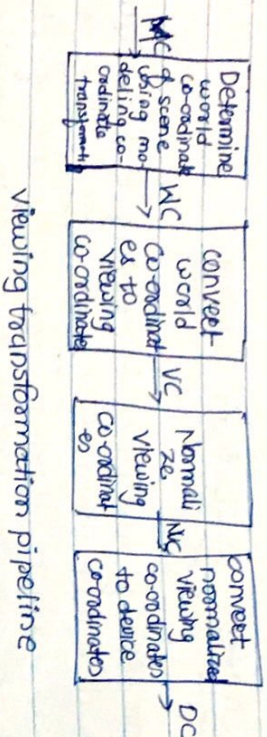 MC
Determine
world
co-ordinate
of scene
using mo-
deling co-
ordinate
transformation
WC
convert
world
co-ordinat
es to
viewing
co-ordinates
VC
Normali
ze
viewing
co-ordinat
es
NC
convert
normalized
viewing
co-ordinates
to device
co-ordinates
DC
viewing transformation pipeline